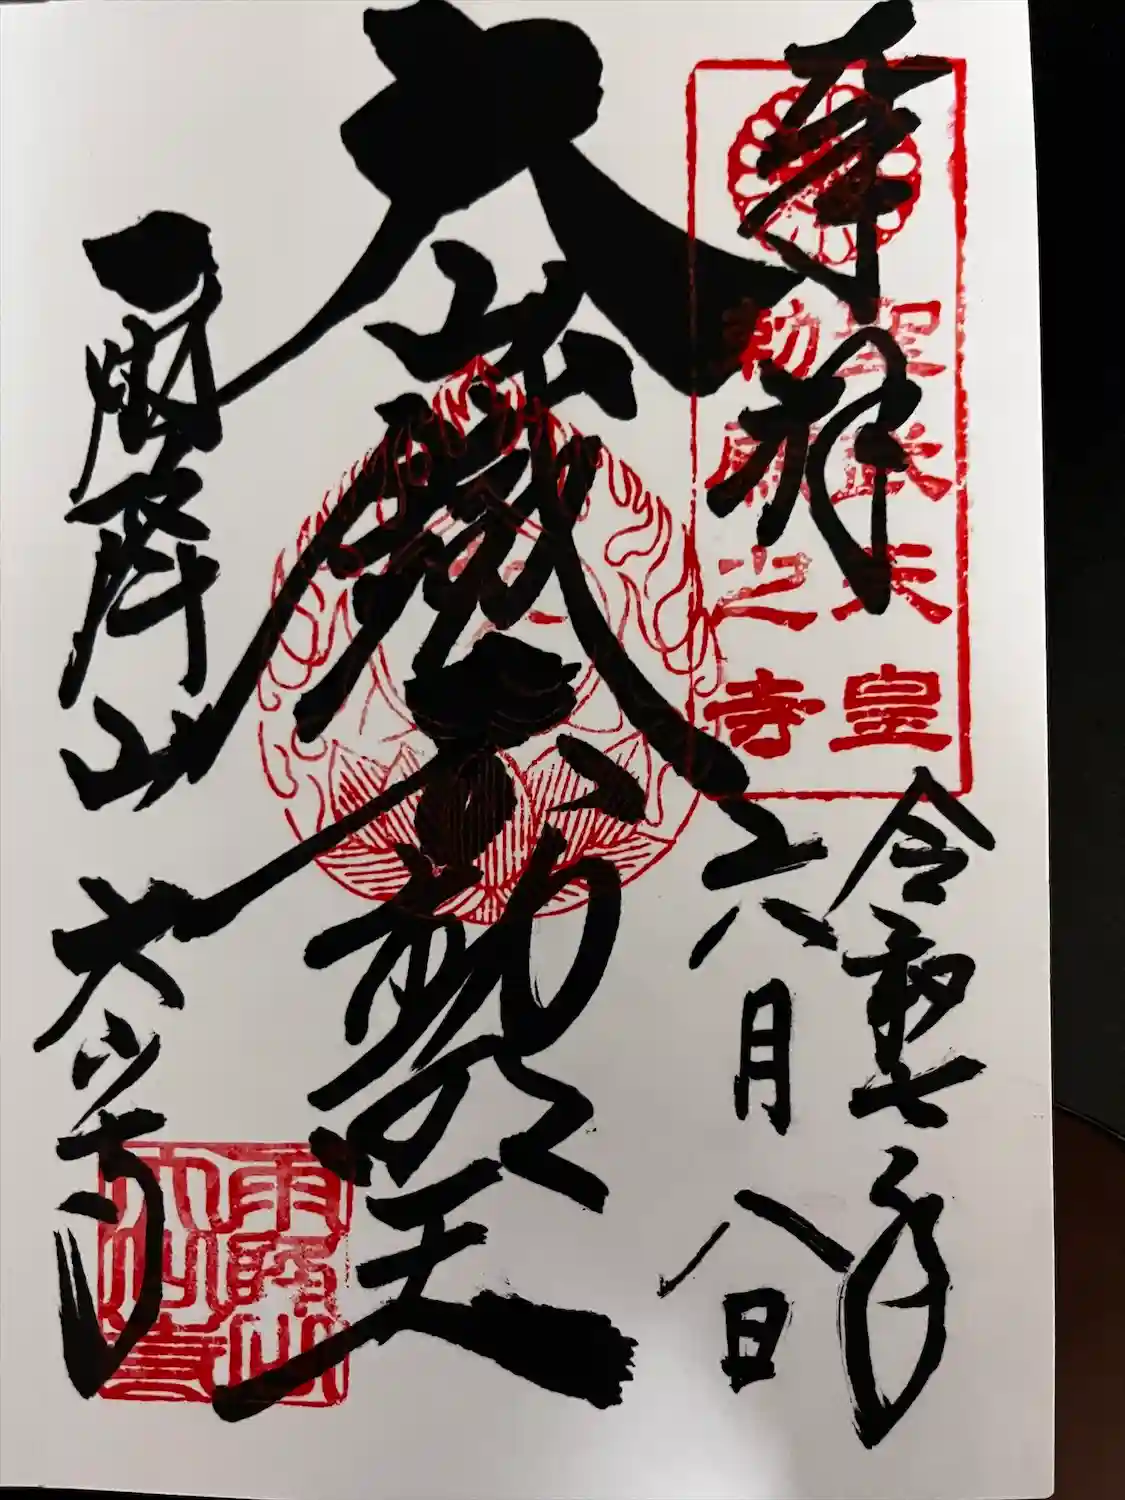 奉拝
聖武天皇
勅願之寺
令和七年
六月八日
大山鐵不動
雨降山 大山寺
雨降山
大山寺